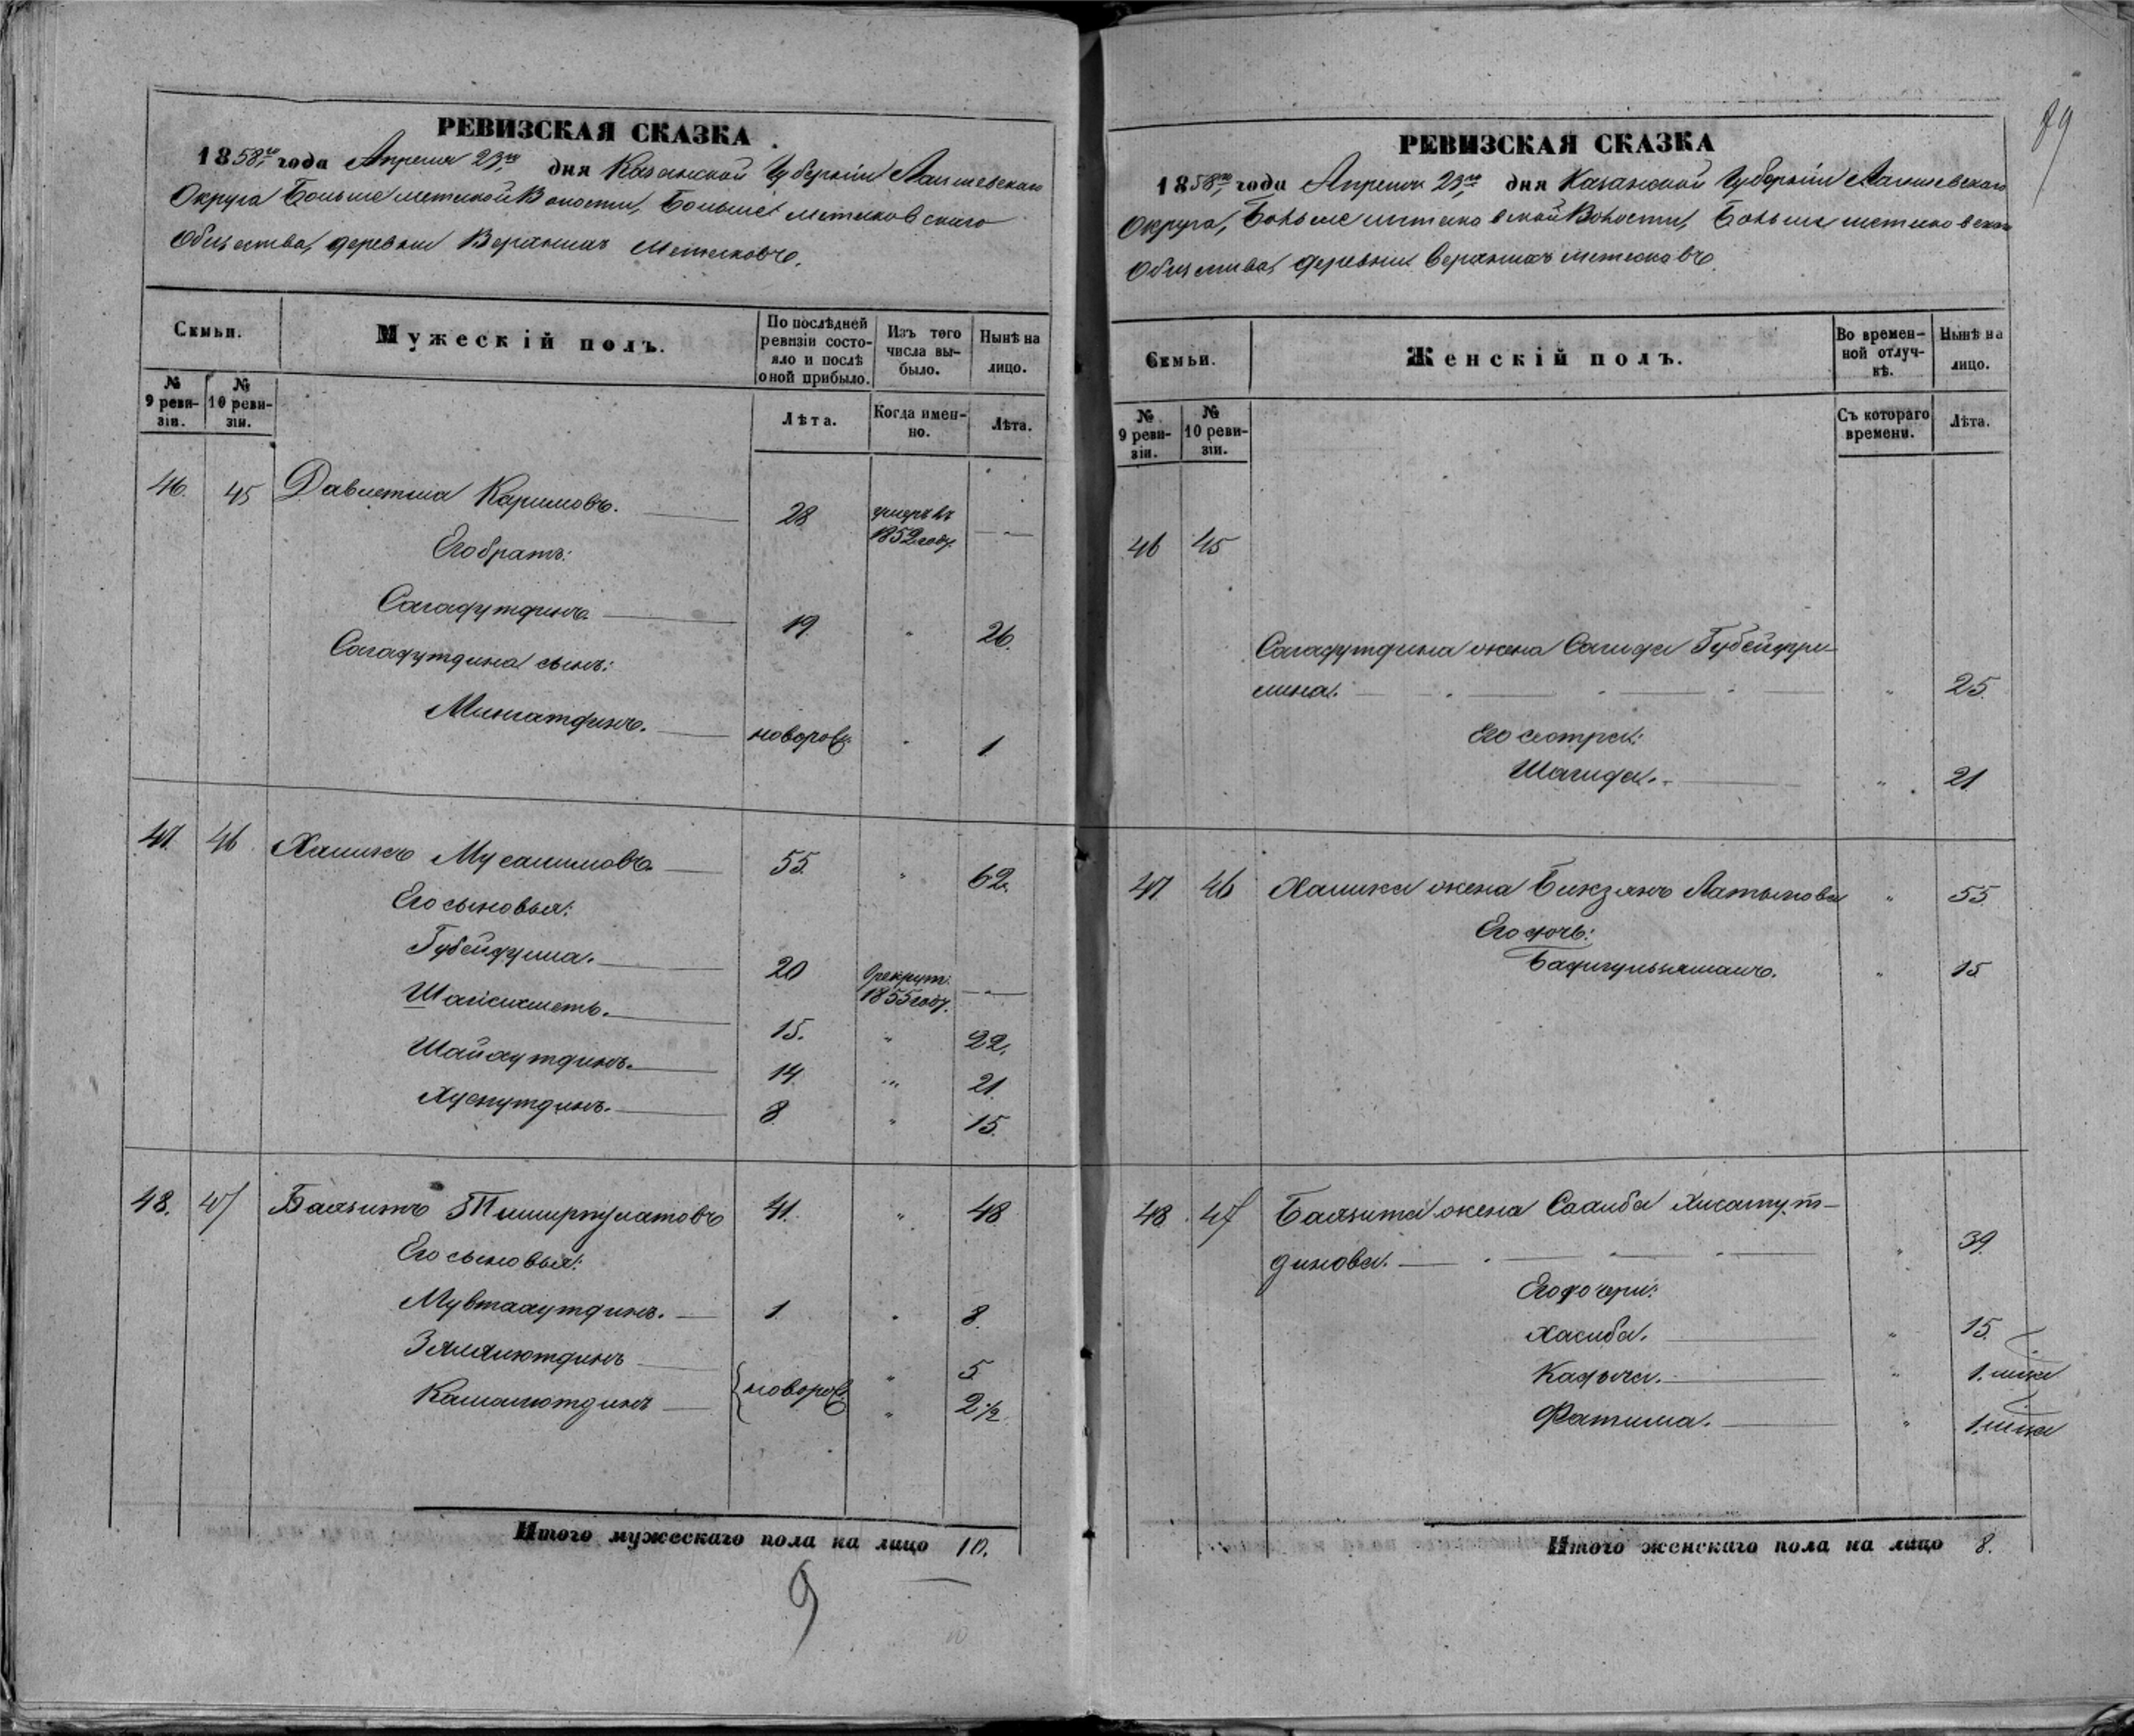 РЕВИЗСКАЯ СКАЗКА
1858го года Апреля 23го дня Казанской Губерніи Лаишевскаго
Округа Больше метеской Волости, Больше метесковскаго
Общества, деревни Верхнихъ Метесковъ.
Семьи.
Мужескій полъ.
По послѣдней ревизіи состояло и послѣ оной прибыло.
Изъ того числа выбыло.
Нынѣ на лицо.
№ 9 ревизіи.
№ 10 ревизіи.
Лѣта.
Когда именно.
Лѣта.
46. 45 Давлетша Каримовъ. 28 умеръ въ 1852 году. — " —
Его братъ:
Сагадутдинъ. 19. " 26.
Сагадутдина сынъ:
Мингатдинъ. новорож. " 1
47. 46 Халикъ Мусалимовъ. 55. " 62.
Его сыновья:
Губейдулла. 20 в рекрут. 1855 году. — " —
Шагиахметь. 15. " 22.
Шайхутдинъ. 14. " 21.
Хуснутдинъ. 8. " 15.
48. 47 Баязитъ Тимирпулатовъ 41. " 48
Его сыновья:
Мувтахутдинъ. 1. " 8.
Зялялютдинъ " 5.
Камалютдинъ } новорож. " 2 ½.
Итого мужескаго пола на лицо 10.
9
89
РЕВИЗСКАЯ СКАЗКА
1858го года Апреля 23го дня Казанской Губерніи Лаишевскаго
Округа, Больше метесковской Волости, Больше метесковскаго
Общества, деревни Верхнихъ метесковъ.
Семьи.
Женскій полъ.
Во временной отлучкѣ.
Нынѣ на лицо.
№ 9 ревизіи.
№ 10 ревизіи.
Съ котораго времени.
Лѣта.
46 45
Сагадутдина жена Сагида Губейдул-
лина. " 25.
Его сестра:
Шагида. " 21
47. 46 Халика жена Бикзянъ Латыпова " 55.
Его дочь:
Бадигульзяманъ. " 15
48. 47 Баязита жена Сахиба Хисамут-
динова. " 39.
Его дочери:
Хасиба. " 15.
Кадыча. " 1. мѣся
Фатима. " 1. мѣся
Итого женскаго пола на лицо 8.